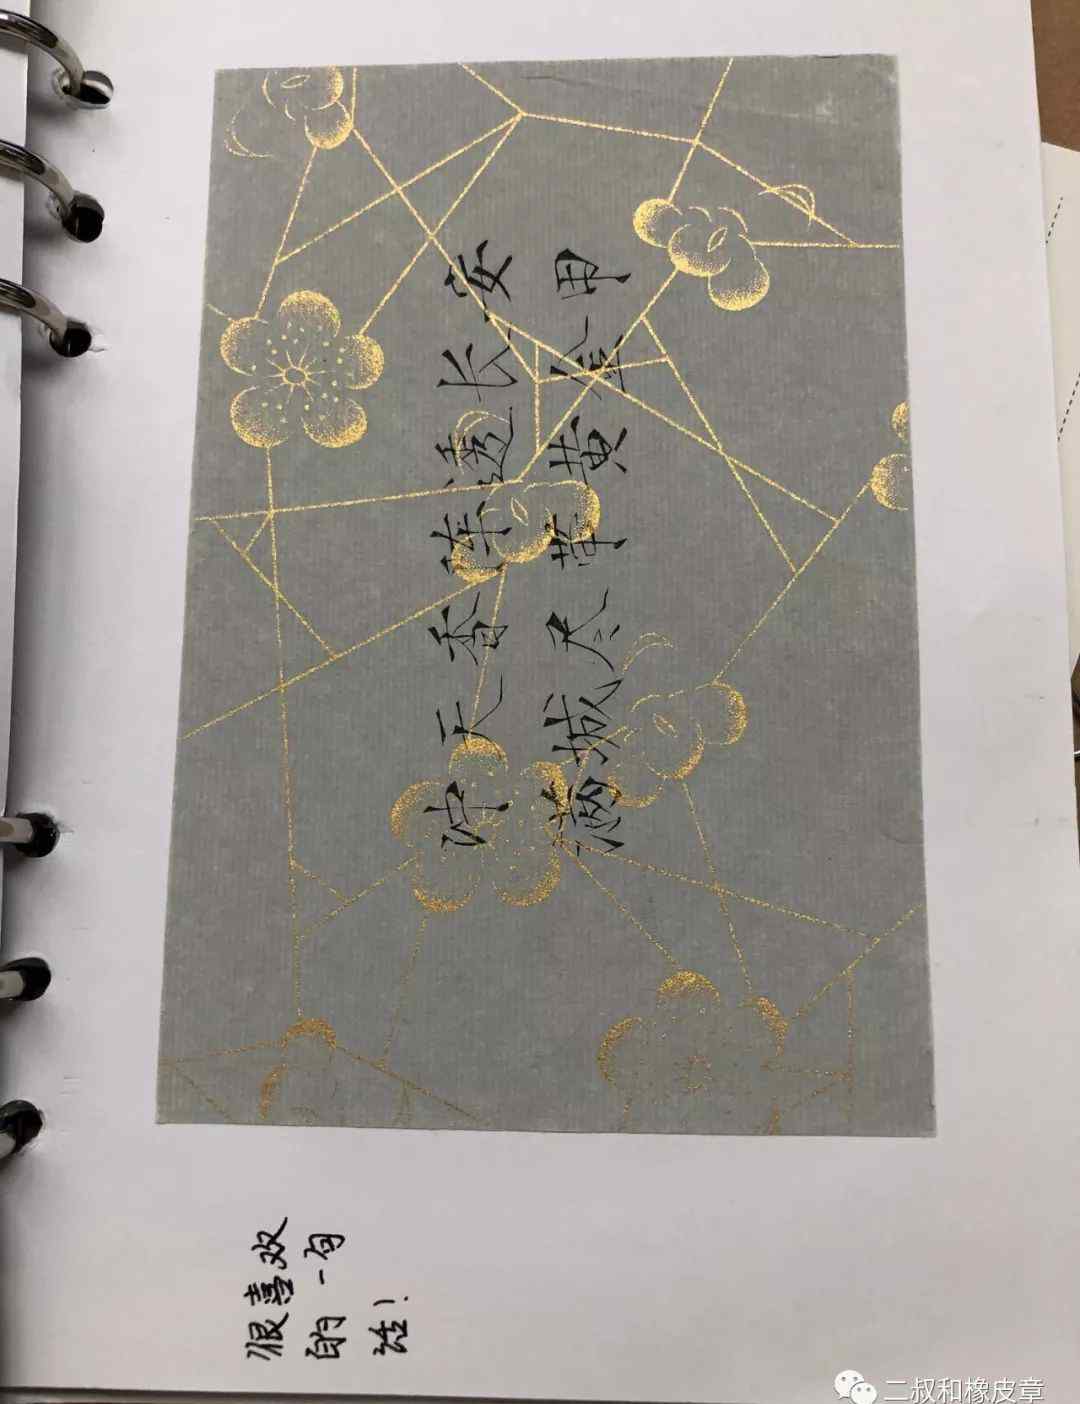 冲天香阵透长安
满城尽带黄金甲
很喜欢
的一句
话!
二叔和橡皮章